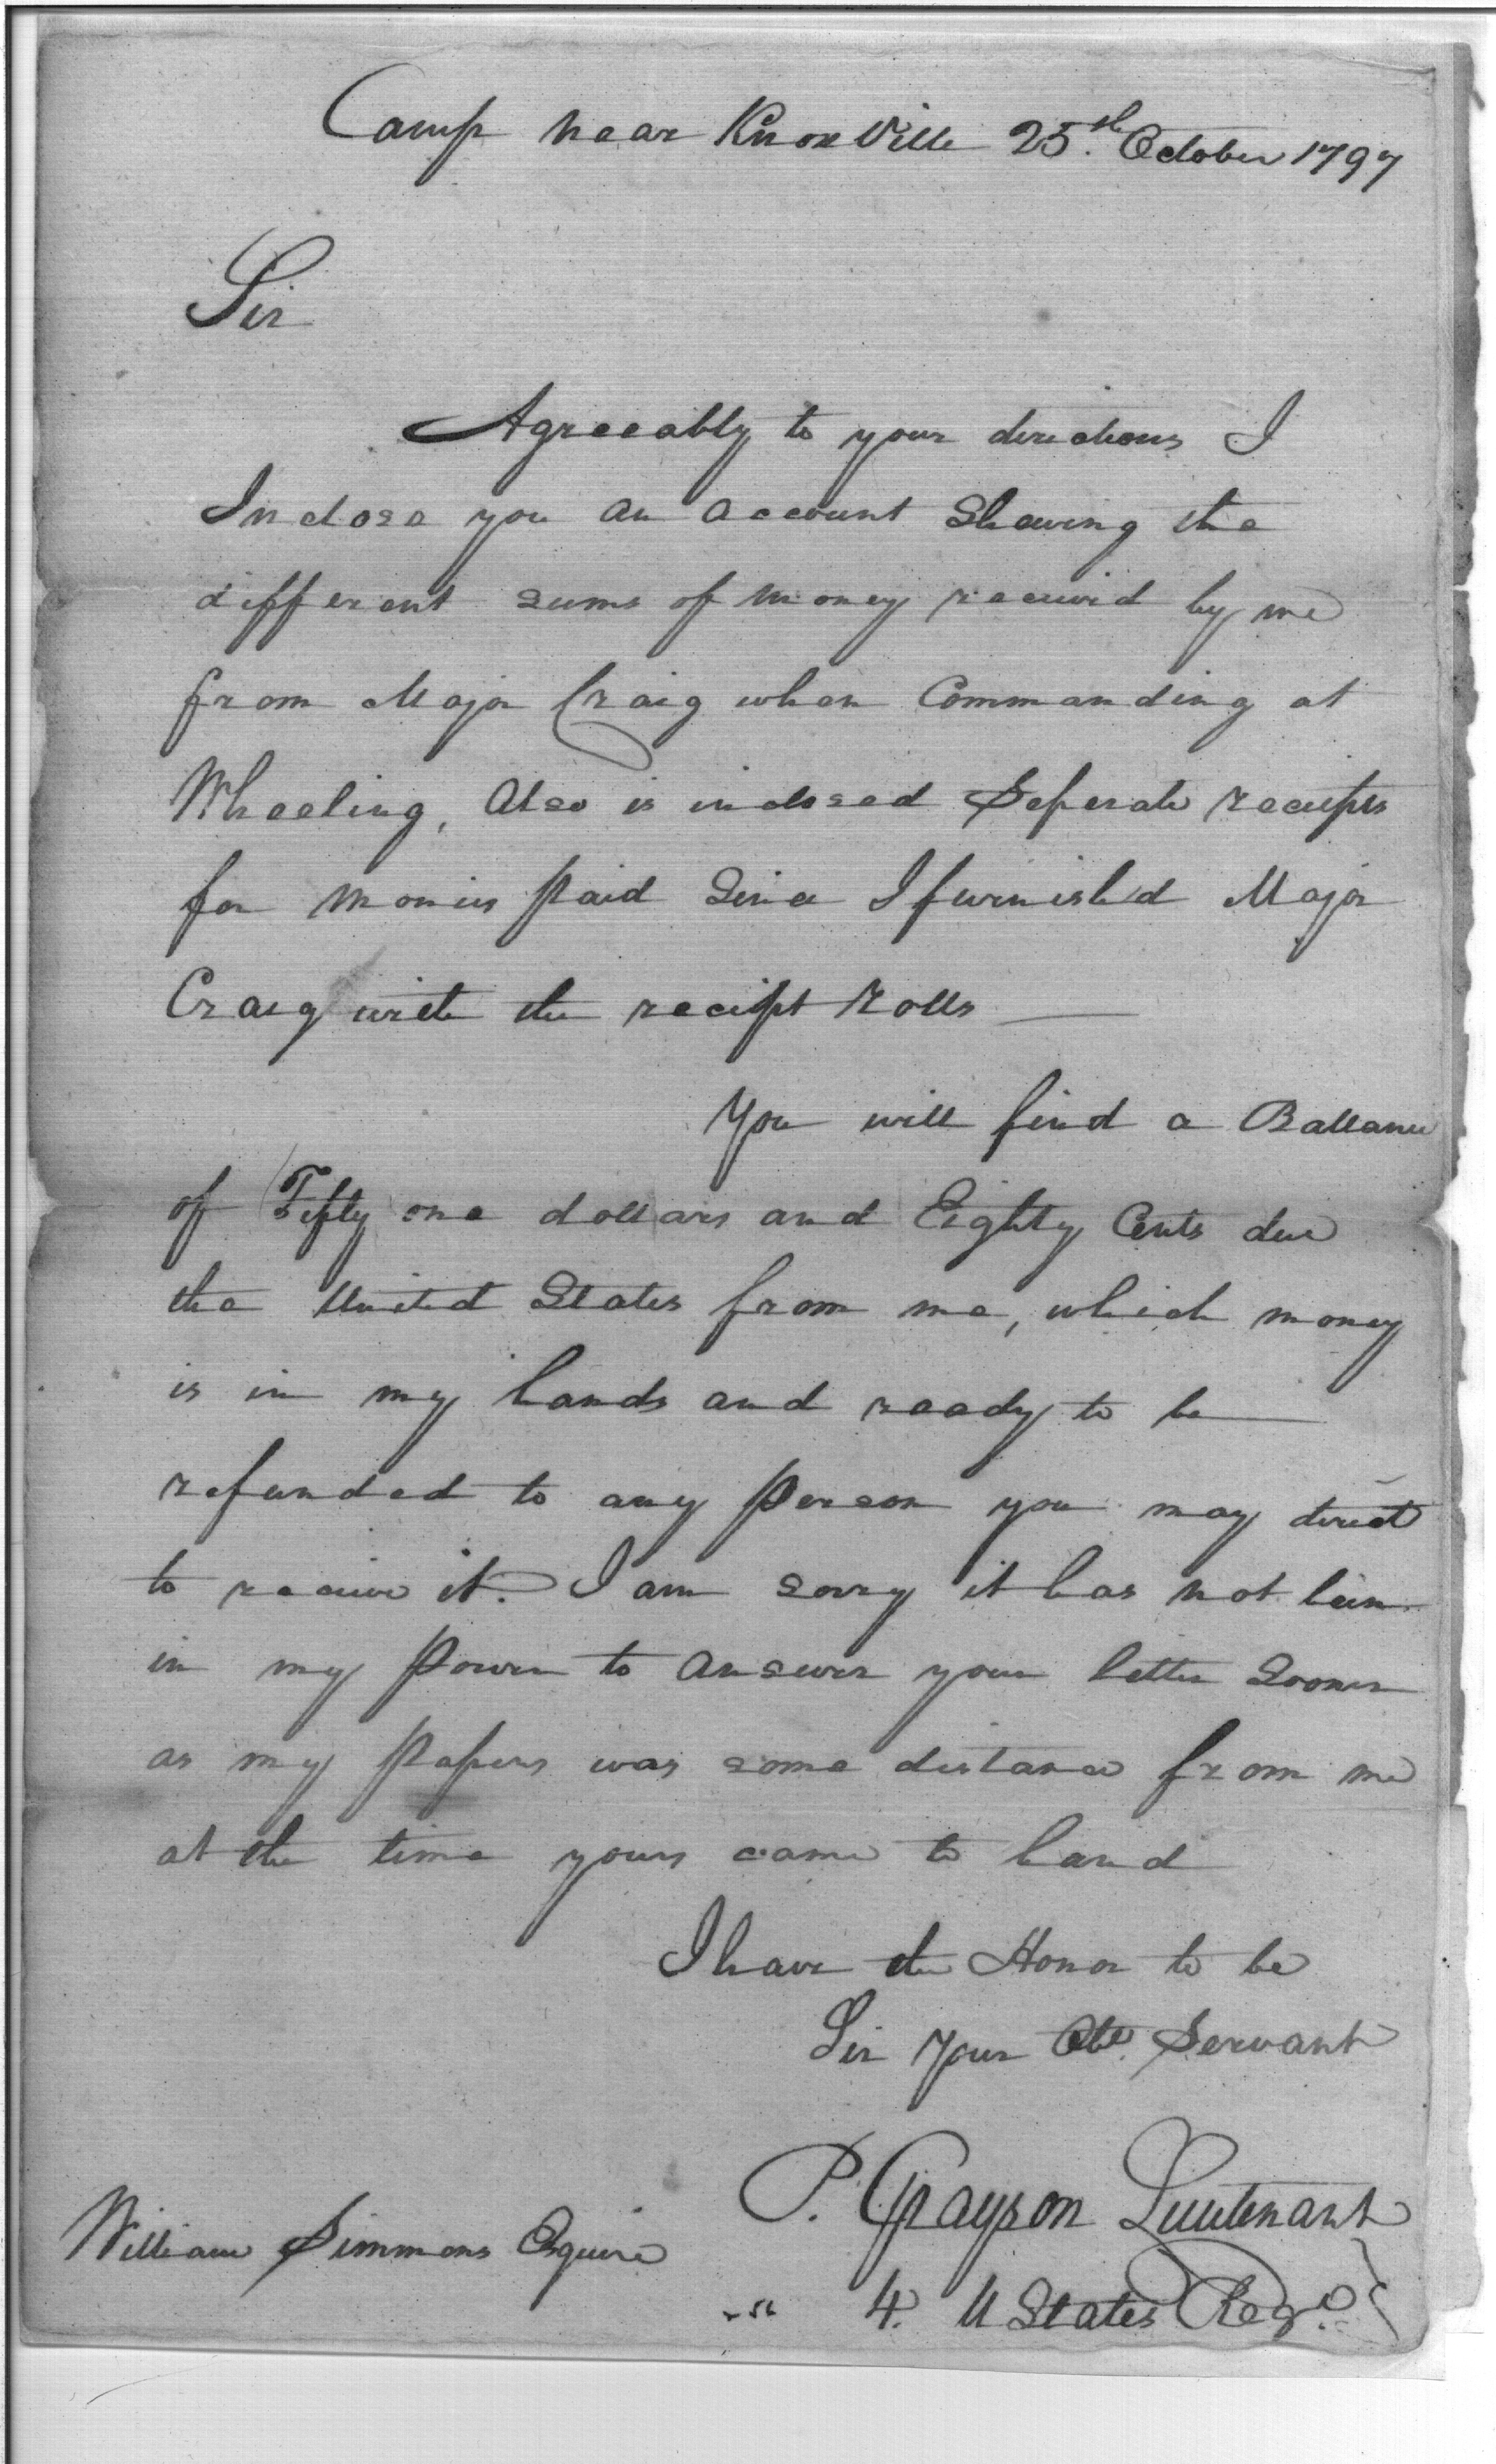 Camp near Knoxville 25th October 1797
Sir
Agreeably to your directions I
Inclose you an account Shewing the
different sums of money received by me
from Major Craig when Commanding at
Wheeling, Also is inclosed Seperate receipts
for monies paid Since I furnish'd Major
Craig with the receipt rolls
You will find a Ballance
of Fifty one dollars and Eighty Cents due
the United States from me, which money
is in my hands and ready to be
refunded to any person you may direct
to receive it. I am sorry it has not been
in my power to answer your letter Sooner
as my papers was some distance from me
at the time yours came to hand
I have the Honor to be
Sir Your Obt Servant
P. Grayson Lieutenant
William Simmons Esquire
4. U States Regt.